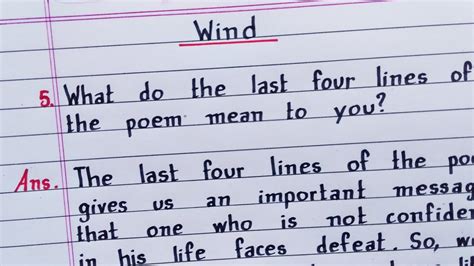 Wind
5. What do the last four lines of
the poem mean to you?
Ans. The last four lines of the
gives us an important
that one who is not
in his life faces defeat. So,